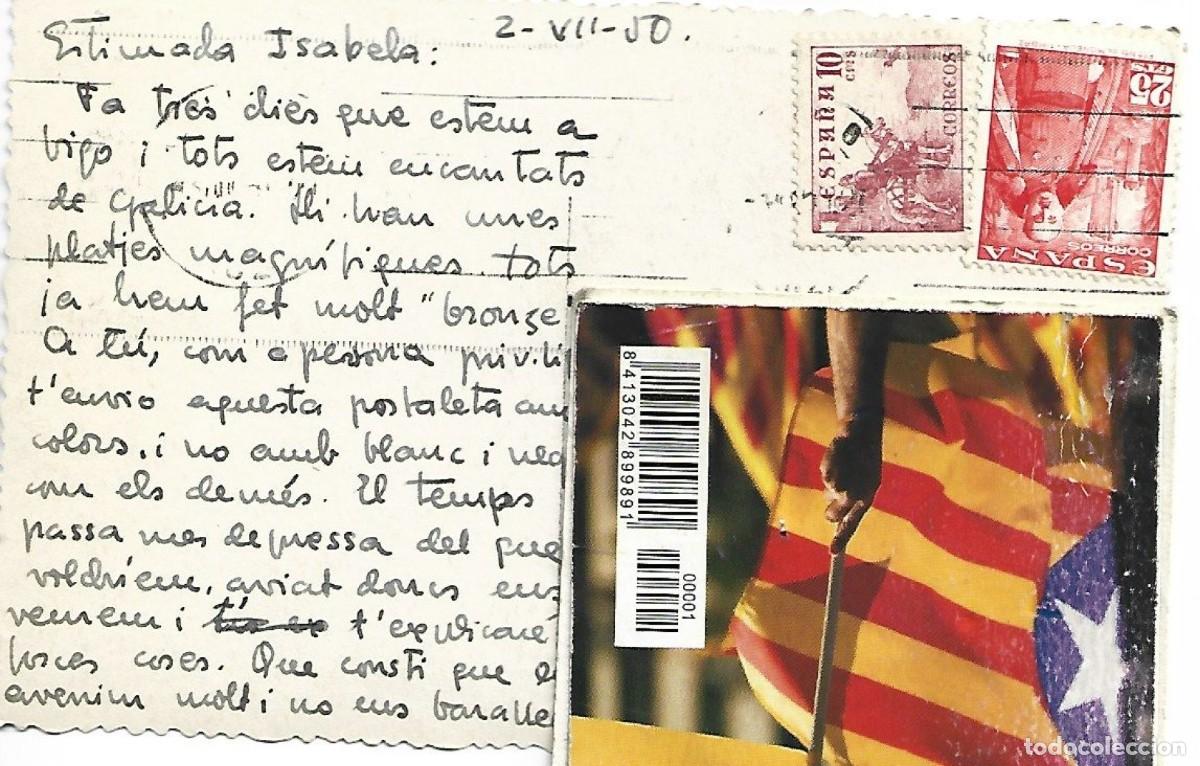 2-VII-50.
Estimada Isabela:
Fa tres dies que estem a
Vigo i tots estem encantats
de Galicia. Hi han unes
platjes magnífiques. tots
ja hem fet molt "bronze
A tú, com a persona privili
t'envio aquesta postaleta am
colors, i no amb blanc i neg
com els demés. El temps
passa mes depressa del que
voldriem, aviat doncs ens
veurem i t'explicaré
forces coses. Que consti que e
avenim molt i no ens baralle
ESPAÑA 10 CTS
CORREOS
25 CTS
CORREOS
ESPAÑA
8 413042 899891
00001
todocoleccion